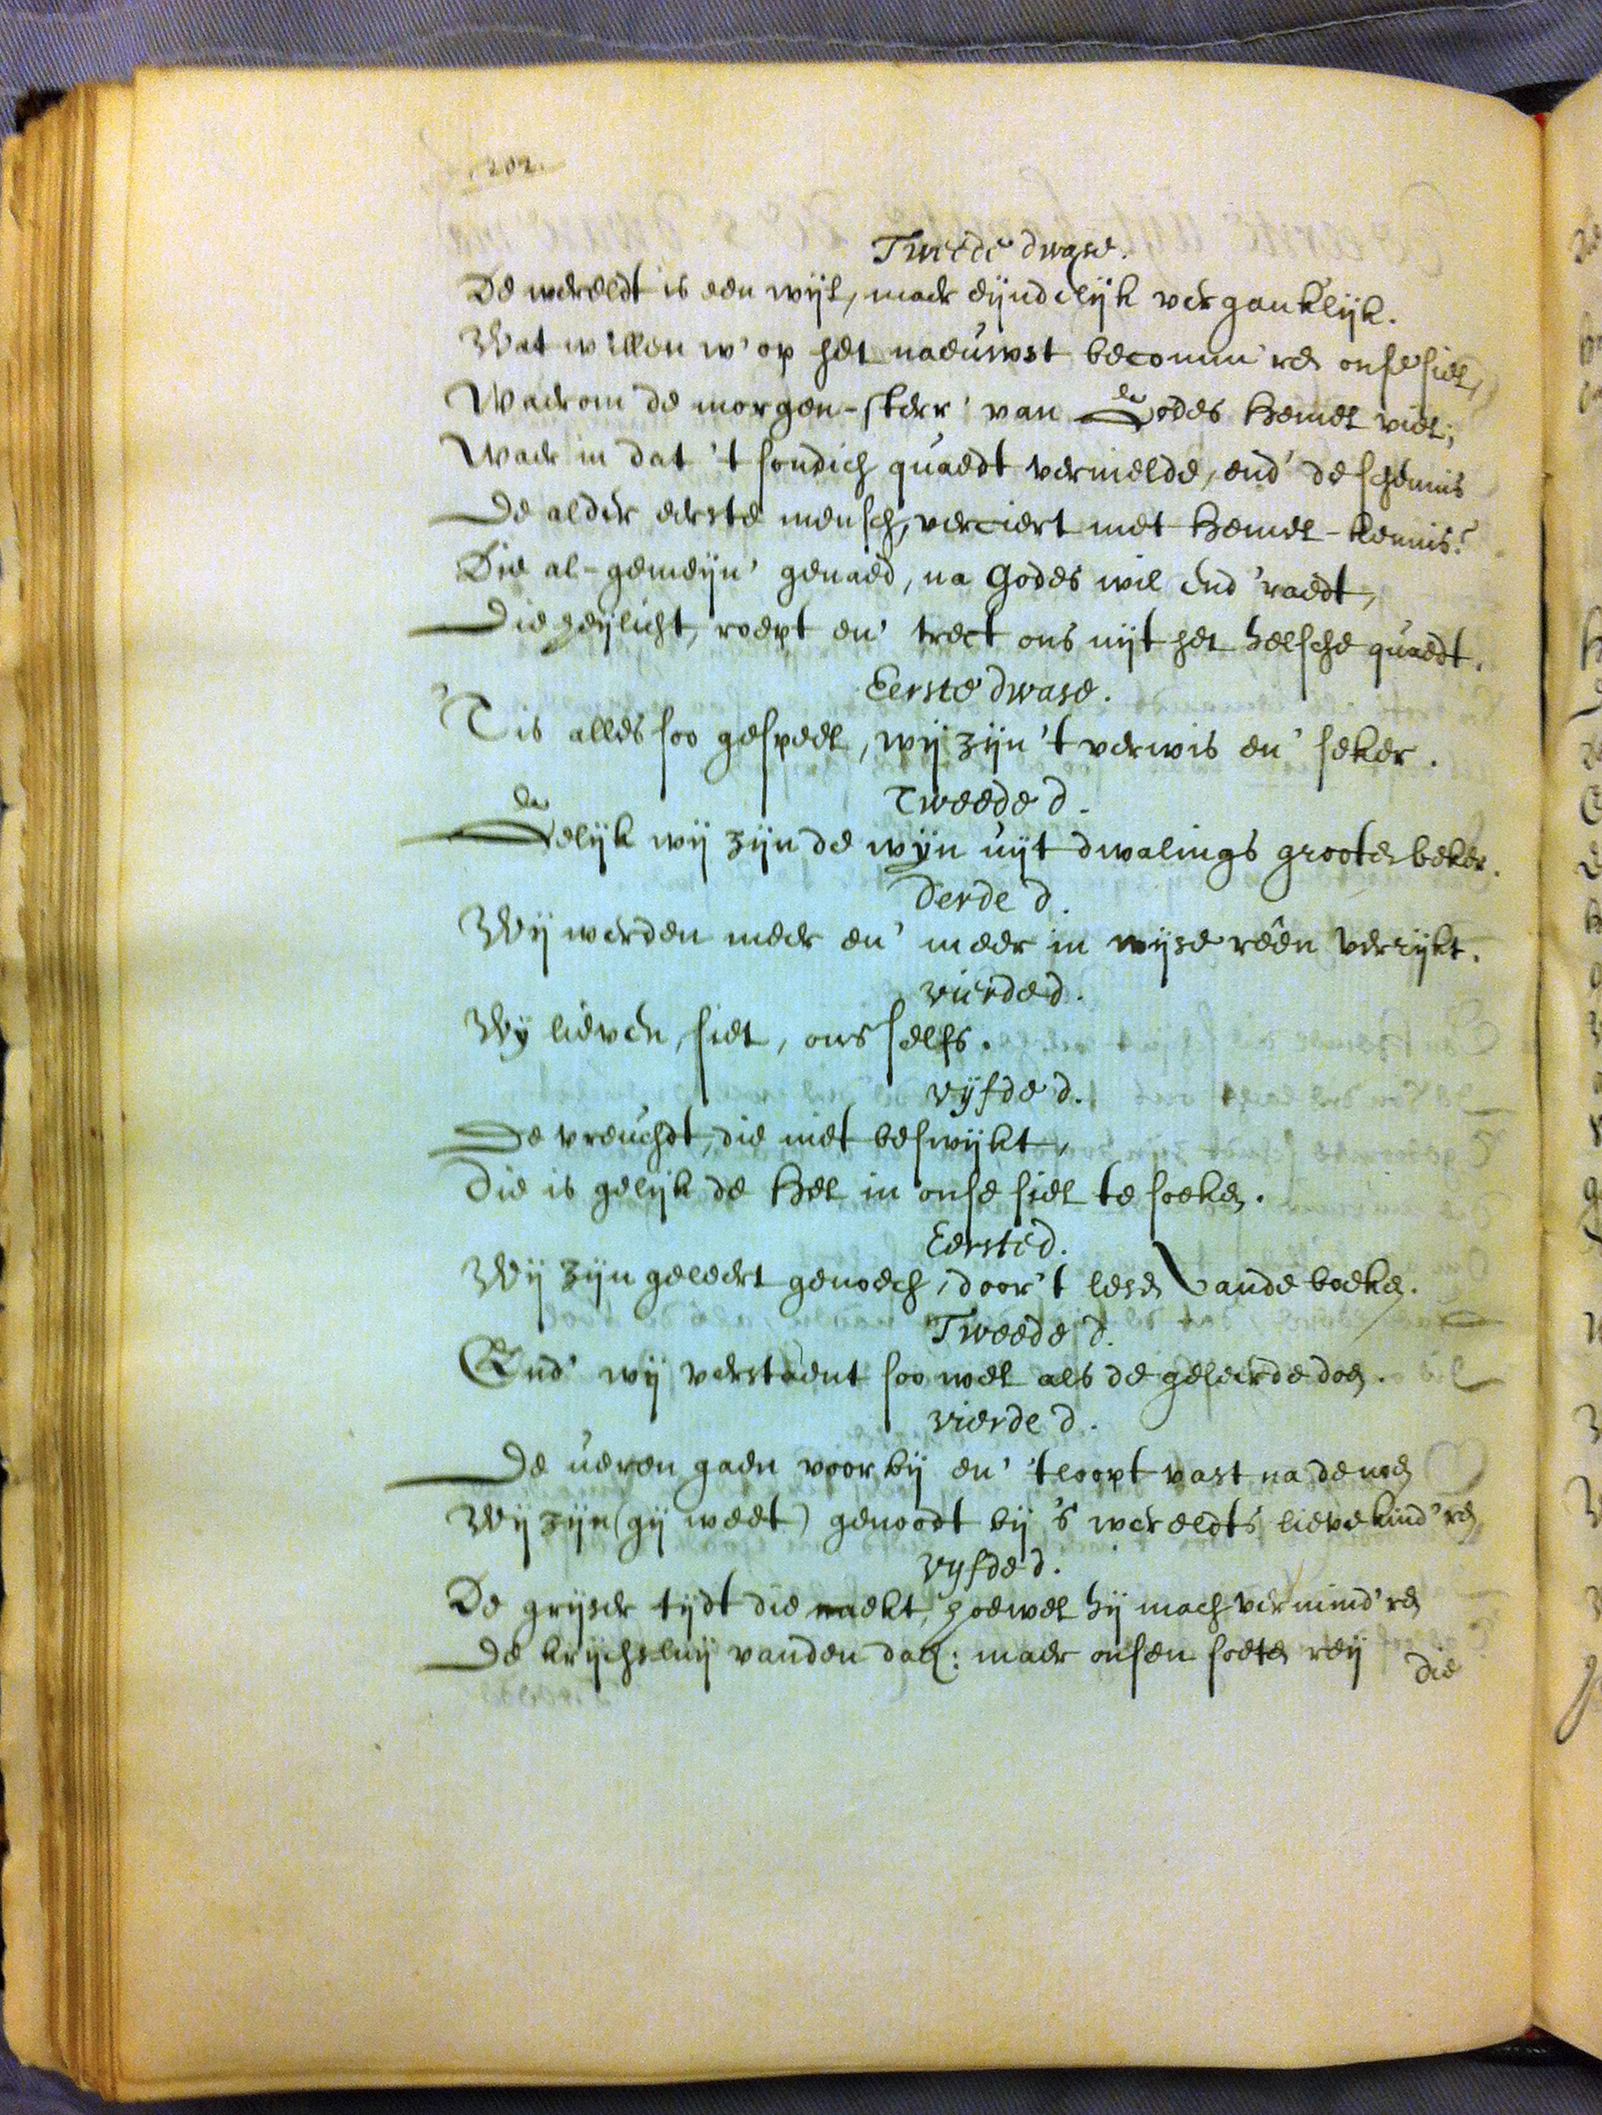 202.
Tweede dwase.
De wereldt is een wijl, maer eijndelijk verganklijk.
Wat willen w' op het naeuwst becomm'ren onse siel,
Waerom de morgen-sterr' van Godes Hemel viel;
Waer in dat 't sondich quaedt vermelde, end' de schennis
De alder eerste mensch, verciert met Hemel-kennis?
Die al-gemeijn' genaed, na Godes wil end' raedt,
Die heylicht, roept en' trect ons uijt het helsche quaedt.
Eerste dwase.
'Tis alles soo gespeelt, wij zijn 't verwis en' seker.
Tweede d.
Gelijk wij zijn de wijn uijt dwalings grooten beker.
Derde d.
Wij werden meer en' meer in wijse reên verrijkt.
vierde d.
Wy lieven, siet, ons selfs.
vijfde d.
De vreuchdt, die niet beswijkt,
Die is gelijk de Hel in onse siel te soeken.
Eerste d.
Wij zijn geleert genoech, door 't lesen vande boeken.
Tweede d.
End' wij verstaent soo wel als de geleerde doen.
vierde d.
De ueren gaen voorbij en' 't loopt vast na de noen
Wij zijn (gij weet) genoodt bij 's wereldts lieve kind'ren
vyfde d.
De grijser tijdt die naekt, hoewel hij mach vermind'ren
De krijchsluij vanden dach: maer onsen soeten reij
die